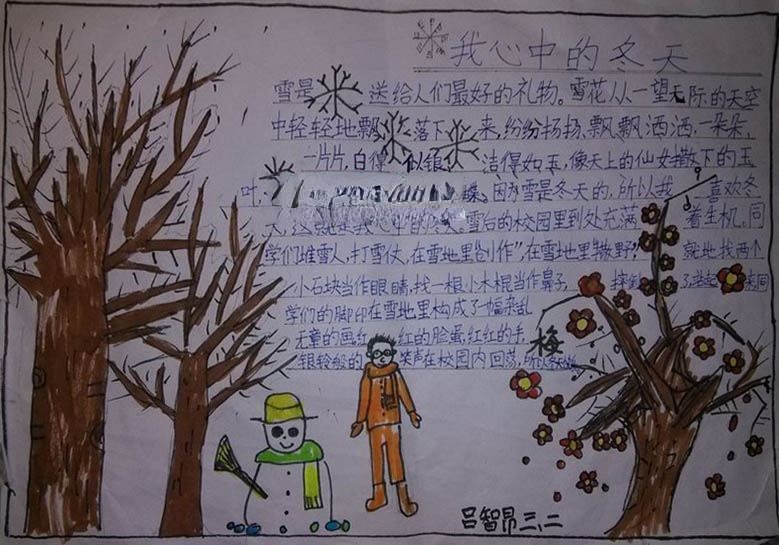 我心中的冬天
雪是 送给人们最好的礼物。雪花从一望无际的天空
中轻轻地飘 落下 来,纷纷扬扬,飘飘洒洒,一朵朵,
一片片,白得 似银, 洁得如玉,像天上的仙女撒下的玉
叶, 蝶。因为雪是冬天的,所以我 喜欢冬
天,这就是我心中的冬天。雪后的校园里到处充满 着生机。同
学们堆雪人,打雪仗,在雪地里“创作”,在雪地里“撒野”, 就地找两个
小石块当作眼睛,找一根小木棍当作鼻子, 摔倒 了,站起 来,同
学们的脚印在雪地里构成了一幅杂乱
无章的画,红 红的脸蛋,红红的手,
银铃般的 笑声在校园内回荡,
梅
吕智昂 三、二